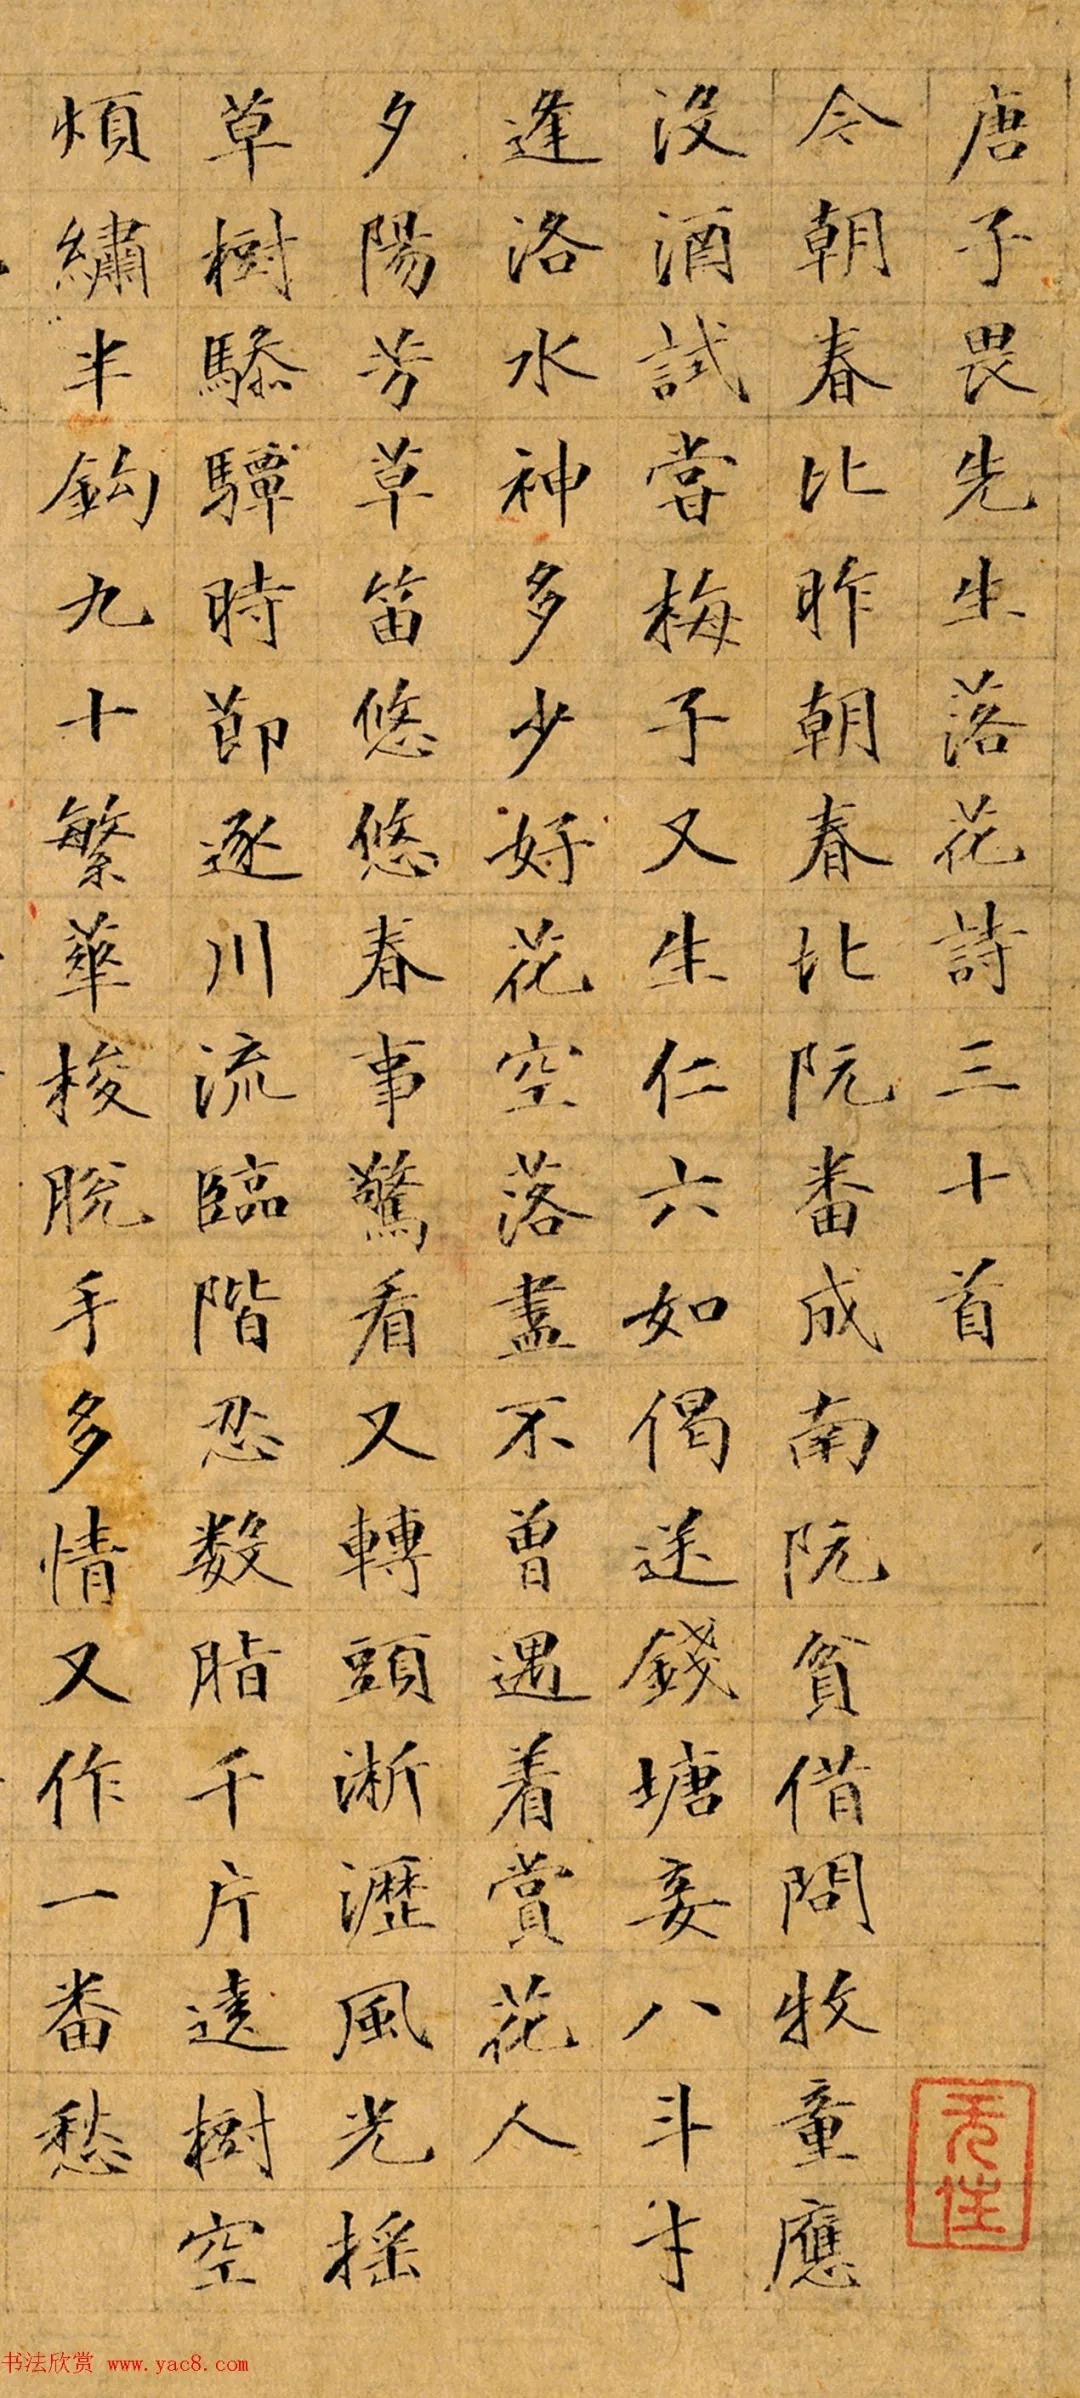 唐子畏先生落花詩三十首
今朝春比昨朝春北阮番成南阮貧借問牧童應
沒酒試嘗梅子又生仁六如偈送錢塘妾八斗才
逢洛水神多少好花空落盡不曾遇着賞花人
夕陽芳草笛悠悠春事驚看又轉頭淅瀝風光搖
草樹驂驔時節逐川流臨階忍数脂千片遶樹空
煩繡半鈎九十繁華梭脫手多情又作一番愁
无住
书法欣赏 www.yac8.com